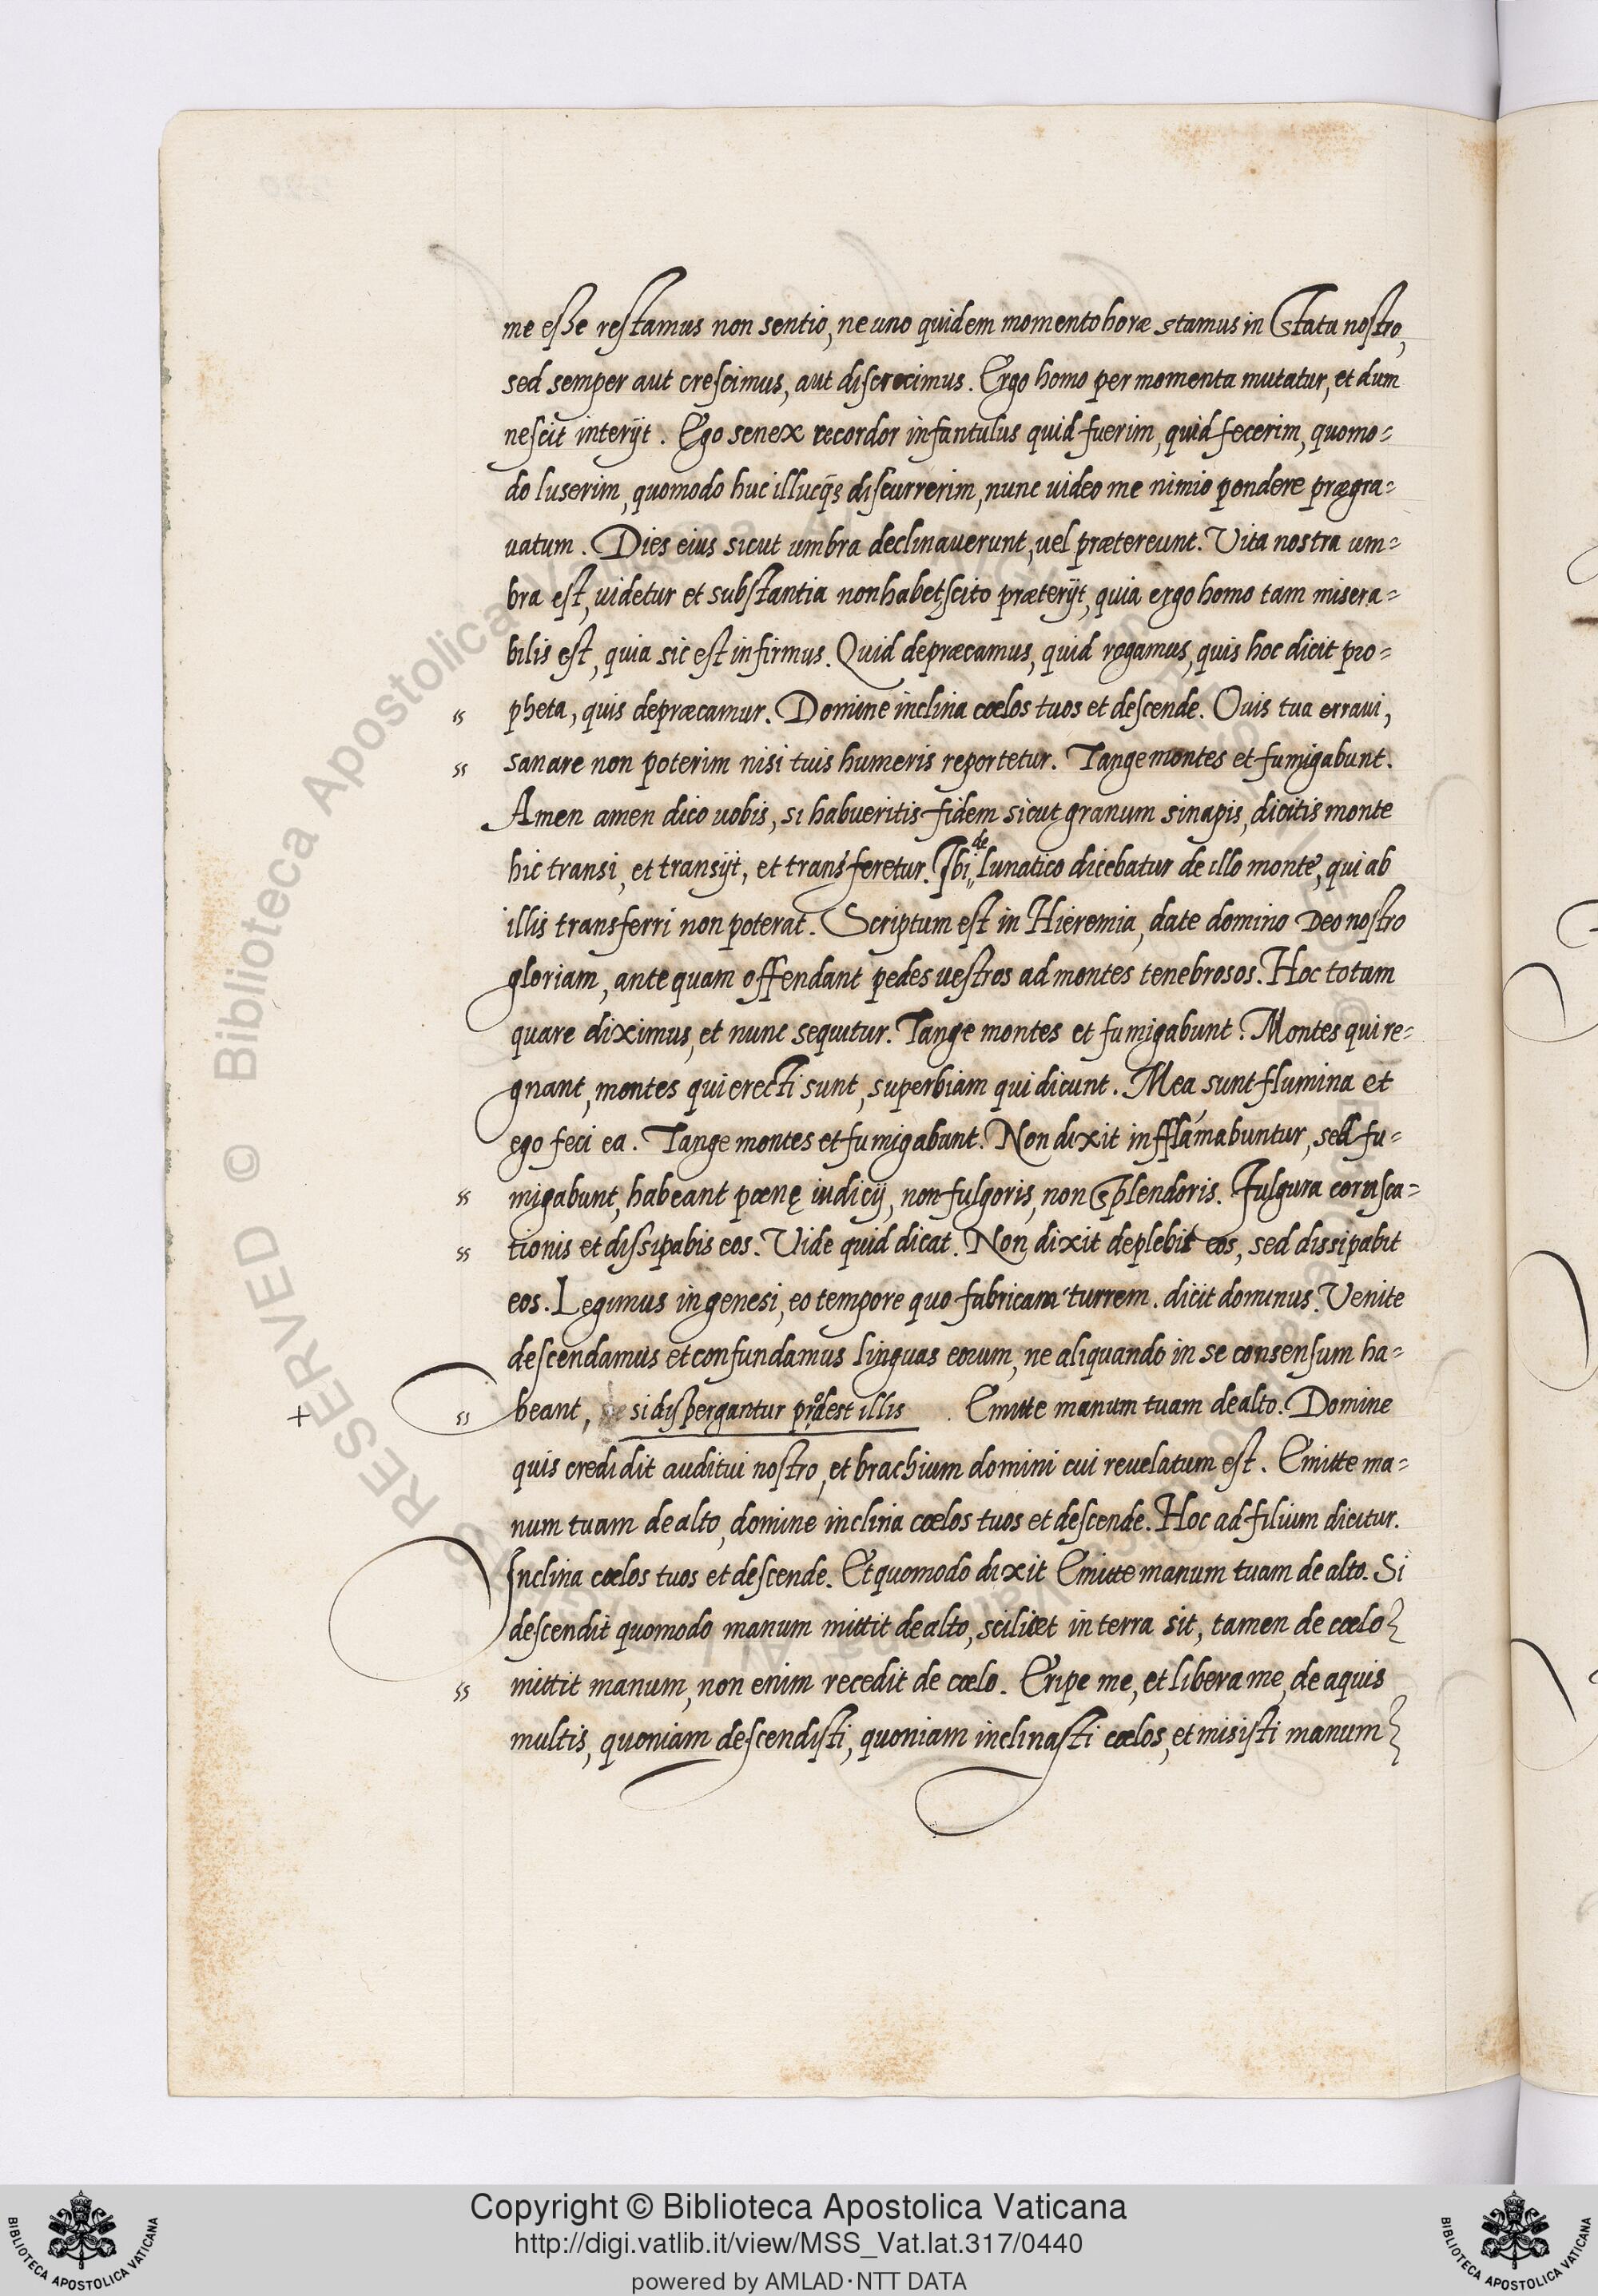 me esse restamus non sentio, ne uno quidem momento horæ stamus in Statu nostro,
sed semper aut crescimus, aut discrecimus. Ergo homo per momenta mutatur, et dum
nescit interijt. Ego senex recordor infantulus quid fuerim, quid fecerim, quomo=
do luserim, quomodo huc illucq́s discurrerim, nunc uideo me nimio pondere prægra=
uatum. Dies eius sicut umbra declinauerunt, uel prætereunt. Vita nostra um=
bra est, uidetur et substantia non habet, scito præterijt, quia ergo homo tam misera=
bilis est, quia sic est infirmus. Quid depræcamus, quid rogamus, quis hoc dicit pro=
" pheta, quis depræcamur. Domine inclina cœlos tuos et descende. Ouis tua erraui,
" sanare non poterim nisi tuis humeris reportetur. Tange montes et fumigabunt.
Amen amen dico uobis, si habueritis fidem sicut granum sinapis, dicitis monte
hic transi, et transijt, et transferetur. Ibi de lunatico dicebatur de illo monte, qui ab
illis transferri non poterat. Scriptum est in Hieremia, date domino Deo nostro
gloriam, ante quam offendant pedes uestros ad montes tenebrosos. Hoc totum
quare diximus, et nunc sequitur. Tange montes et fumigabunt. Montes qui re=
gnant, montes qui erecti sunt, superbiam qui dicunt. Mea sunt flumina et
ego feci ea. Tange montes et fumigabunt. Non dixit inffláмabuntur, sed fu=
" migabunt, habeant pœnę iudicij, non fulgoris, non Splendoris. Fulgura corusca=
" tionis et dissipabis eos. Vide quid dicat. Non dixit deplebit eos, sed dissipabit
eos. Legimus in genesi, eo tempore quo fabricam turrem. dicit dominus. Venite
descendamus et confundamus linguas eorum, ne aliquando in se consensum ha=
+ " beant, si dispergantur prodest illis . Emitte manum tuam de alto. Domine
quis credidit auditui nostro, et brachium domini cui reuelatum est. Emitte ma=
num tuam de alto, domine inclina cœlos tuos et descende. Hoc ad filium dicitur.
Inclina cœlos tuos et descende. Et quomodo dixit Emitte manum tuam de alto. Si
descendit quomodo manum mittit de alto, scilicet in terra sit, tamen de cœlo
" mittit manum, non enim recedit de cœlo. Eripe me, et libera me, de aquis
multis, quoniam descendisti, quoniam inclinasti cœlos, et misisti manum
RESERVED © Biblioteca Apostolica Vaticana
Copyright © Biblioteca Apostolica Vaticana
http://digi.vatlib.it/view/MSS_Vat.lat.317/0440
powered by AMLAD·NTT DATA
BIBLIOTECA APOSTOLICA VATICANA
BIBLIOTECA APOSTOLICA VATICANA